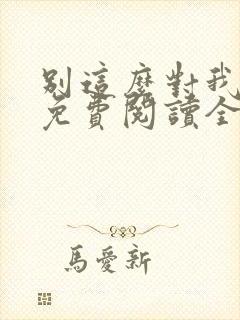 別這麼對我
免費閱讀全
馬愛新